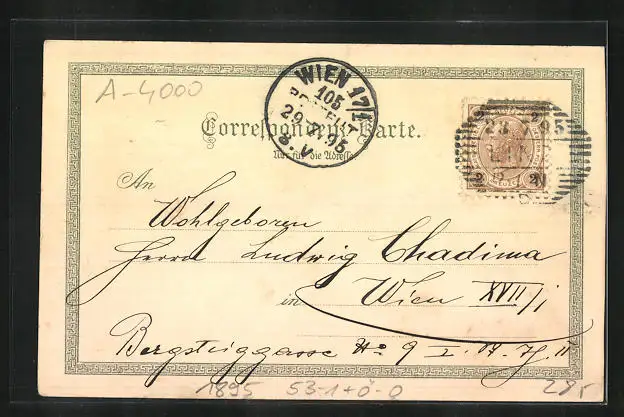 A-4000
WIEN 17/1
105
29.5.95
8.V
Correspondenz-Karte.
Nur für die Adresse.
2 2
23 95
2 2
An
Wohlgeboren
Herrn Ludwig Chadima
in Wien XVII/1
Bergsteiggasse No 9
1895 53-1+Ö-O 28r